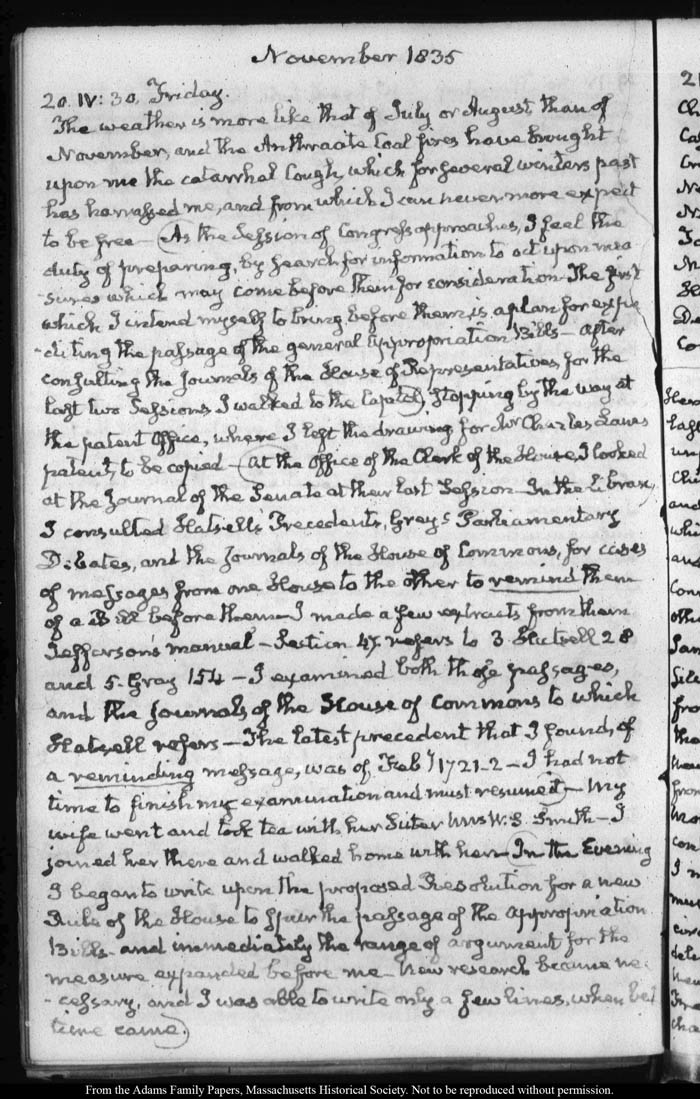 November 1835
20. IV: 30. Friday.
The weather is more like that of July or August than of
November, and the Anthracite Coal fires have brought
upon me the catarrhal Cough, which for several winters past
has harrassed me, and from which I can never more expect
to be free — (As the Session of Congress approaches, I feel the
duty of preparing, by search for information to act upon mea
-sures which may come before them for consideration. The first
which I intend myself to bring before them is a plan for expe
-diting the passage of the general Appropriation Bills — after
consulting the Journals of the House of Representatives, for the
last two Sessions I walked to the Capitol), stopping by the way at
the patent Office, where I left the drawing for Mr Charles
patent, to be copied — (At the Office of the Clerk of the House, I looked
at the Journal of the Senate at their last Session — In the Library,
I consulted Hatsell's Precedents, Grey's Parliamentary
Debates, and the Journals of the House of Commons, for cases
of messages from one House to the other to remind them
of a Bill before them — I made a few extracts from them
Jefferson's manual — Section 47. refers to 3. Hatsell 28
and 5. Gray 154 — I examined both those passages,
and the Journals of the House of Commons to which
Hatsell refers — The latest precedent that I found, of
a reminding message, was of Feby 1721-2 — I had not
time to finish my examination and must resume it) — My
wife went and took tea with her Sister Mrs W. S. Smith — I
joined her there and walked home with her — (In the Evening
I began to write upon the proposed Resolution for a new
Rule of the House to spur the passage of the appropriation
Bills — and immediately the range of argument for the
measure expanded before me — New research became ne
-cessary, and I was able to write only a few lines, when bed
time came.)
From the Adams Family Papers, Massachusetts Historical Society. Not to be reproduced without permission.